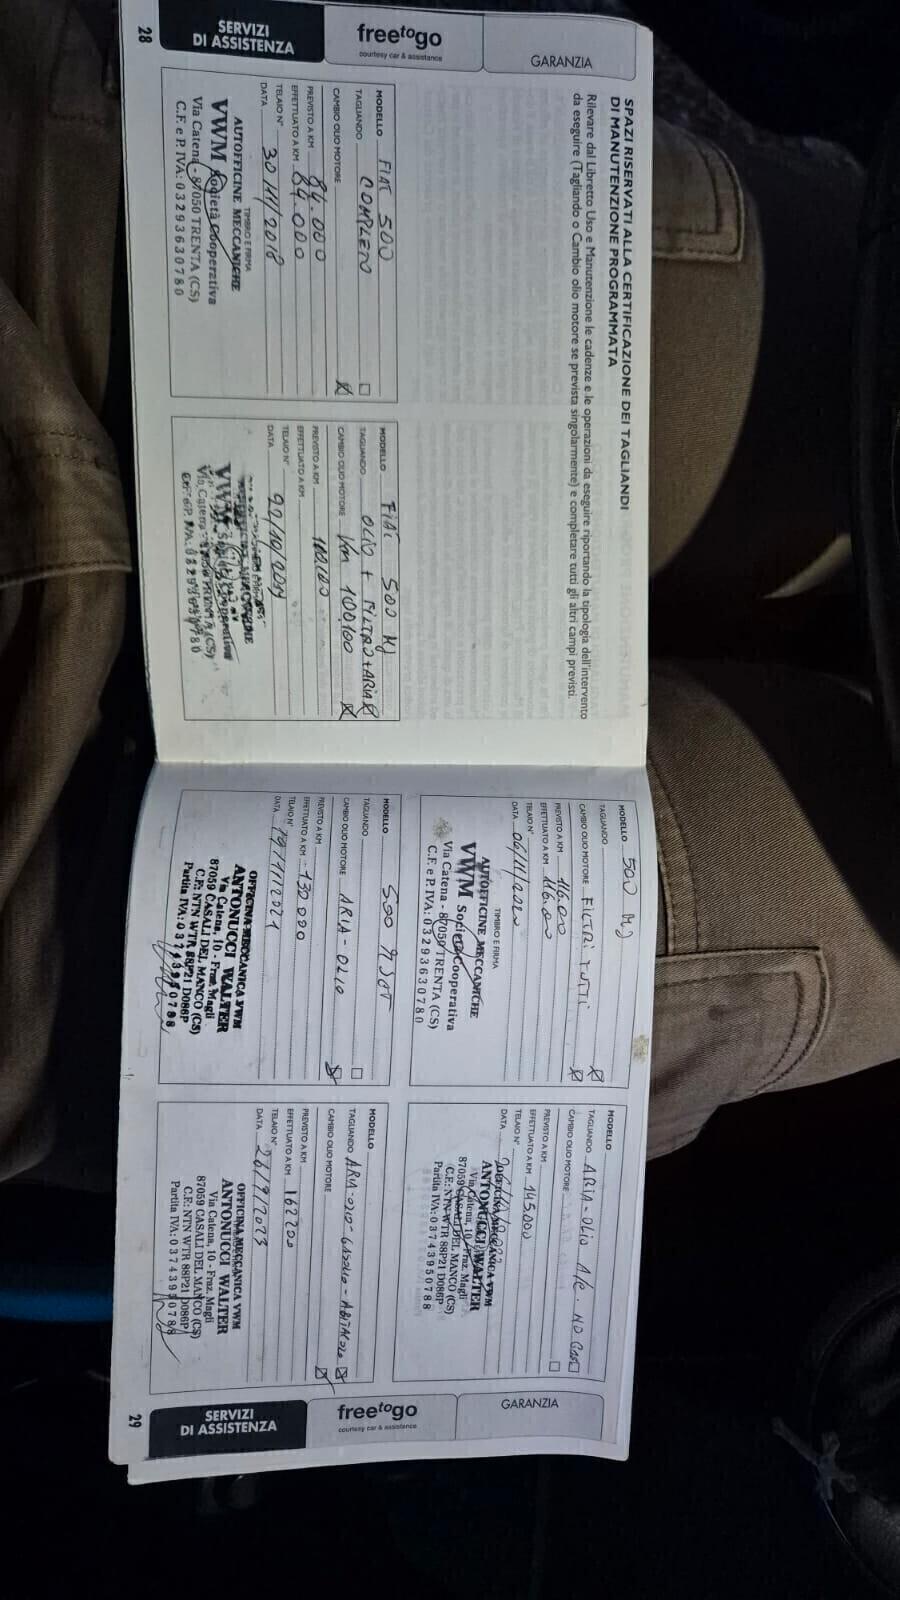 28
SERVIZI
DI ASSISTENZA
freetogo
courtesy car & assistance
GARANZIA
SPAZI RISERVATI ALLA CERTIFICAZIONE DEI TAGLIANDI
DI MANUTENZIONE PROGRAMMATA
Rilevare dal Libretto Uso e Manutenzione le cadenze e le operazioni da eseguire riportando la tipologia dell'intervento
da eseguire (Tagliando o Cambio olio motore se prevista singolarmente) e completare tutti gli altri campi previsti.
MODELLO FIAT 500
TAGLIANDO COMPLETO
CAMBIO OLIO MOTORE
PREVISTO A KM 84.000
EFFETTUATO A KM 84.000
TELAIO N°
DATA 30/11/2018
TIMBRO E FIRMA
AUTOFFICINE MECCANICHE
VWM Società Cooperativa
Via Catena - 87050 TRENTA (CS)
C.F. e P. IVA: 03293630780
MODELLO FIAT 500 MJ
TAGLIANDO OLIO + FILTRO + ARIA
CAMBIO OLIO MOTORE Km 100.100
PREVISTO A KM
EFFETTUATO A KM 100.100
TELAIO N°
DATA
VWM Società Cooperativa
Via Catena - 87050 TRENTA (CS)
C.F. e P. IVA: 03293630780
MODELLO 500 MJ
TAGLIANDO
CAMBIO OLIO MOTORE FILTRI TUTTI
PREVISTO A KM 116.000
EFFETTUATO A KM 116.000
TELAIO N°
DATA 06/11/2020
TIMBRO E FIRMA
AUTOFFICINE MECCANICHE
VWM Società Cooperativa
Via Catena - 87050 TRENTA (CS)
C.F. e P. IVA: 03293630780
MODELLO
TAGLIANDO ARIA - OLIO A/C. NO GAS
CAMBIO OLIO MOTORE
PREVISTO A KM
EFFETTUATO A KM 145.000
TELAIO N°
DATA
OFFICINA MECCANICA VWM
ANTONUCCI WALTER
Via Catena, 10 - Fraz. Magli
87059 CASALI DEL MANCO (CS)
C.F.: NTN WTR 88P21 D086P
Partita IVA: 03743950788
MODELLO 500 MJET
TAGLIANDO
CAMBIO OLIO MOTORE ARIA - OLIO
PREVISTO A KM
EFFETTUATO A KM 130 000
TELAIO N°
DATA 19/11/2021
OFFICINA MECCANICA VWM
ANTONUCCI WALTER
Via Catena, 10 - Fraz. Magli
87059 CASALI DEL MANCO (CS)
C.F.: NTN WTR 88P21 D086P
Partita IVA: 03743950788
MODELLO
TAGLIANDO ARIA - OLIO - GASOLIO - ABITACOLO
CAMBIO OLIO MOTORE
PREVISTO A KM
EFFETTUATO A KM 162200
TELAIO N°
DATA 26/9/2023
OFFICINA MECCANICA VWM
ANTONUCCI WALTER
Via Catena, 10 - Fraz. Magli
87059 CASALI DEL MANCO (CS)
C.F.: NTN WTR 88P21 D086P
Partita IVA: 03743950788
29
SERVIZI
DI ASSISTENZA
freetogo
courtesy car & assistance
GARANZIA